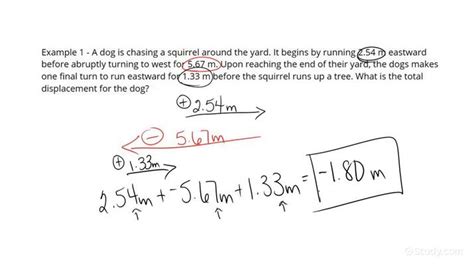 Example 1 - A dog is chasing a squirrel around the yard. It begins by running 2.54 m eastward
before abruptly turning to west for 5.67 m. Upon reaching the end of their yard, the dogs makes
one final turn to run eastward for 1.33 m before the squirrel runs up a tree. What is the total
displacement for the dog?
+ 2.54m
- 5.67m
+ 1.33m
2.54m + -5.67m + 1.33m = -1.80 m
©Study.com